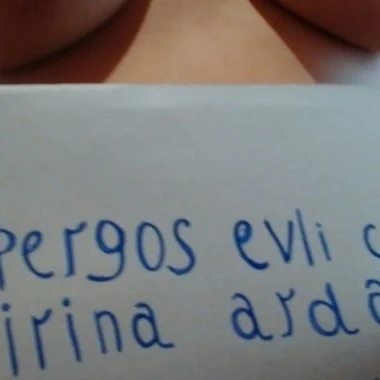 pergos evli c
irina arda